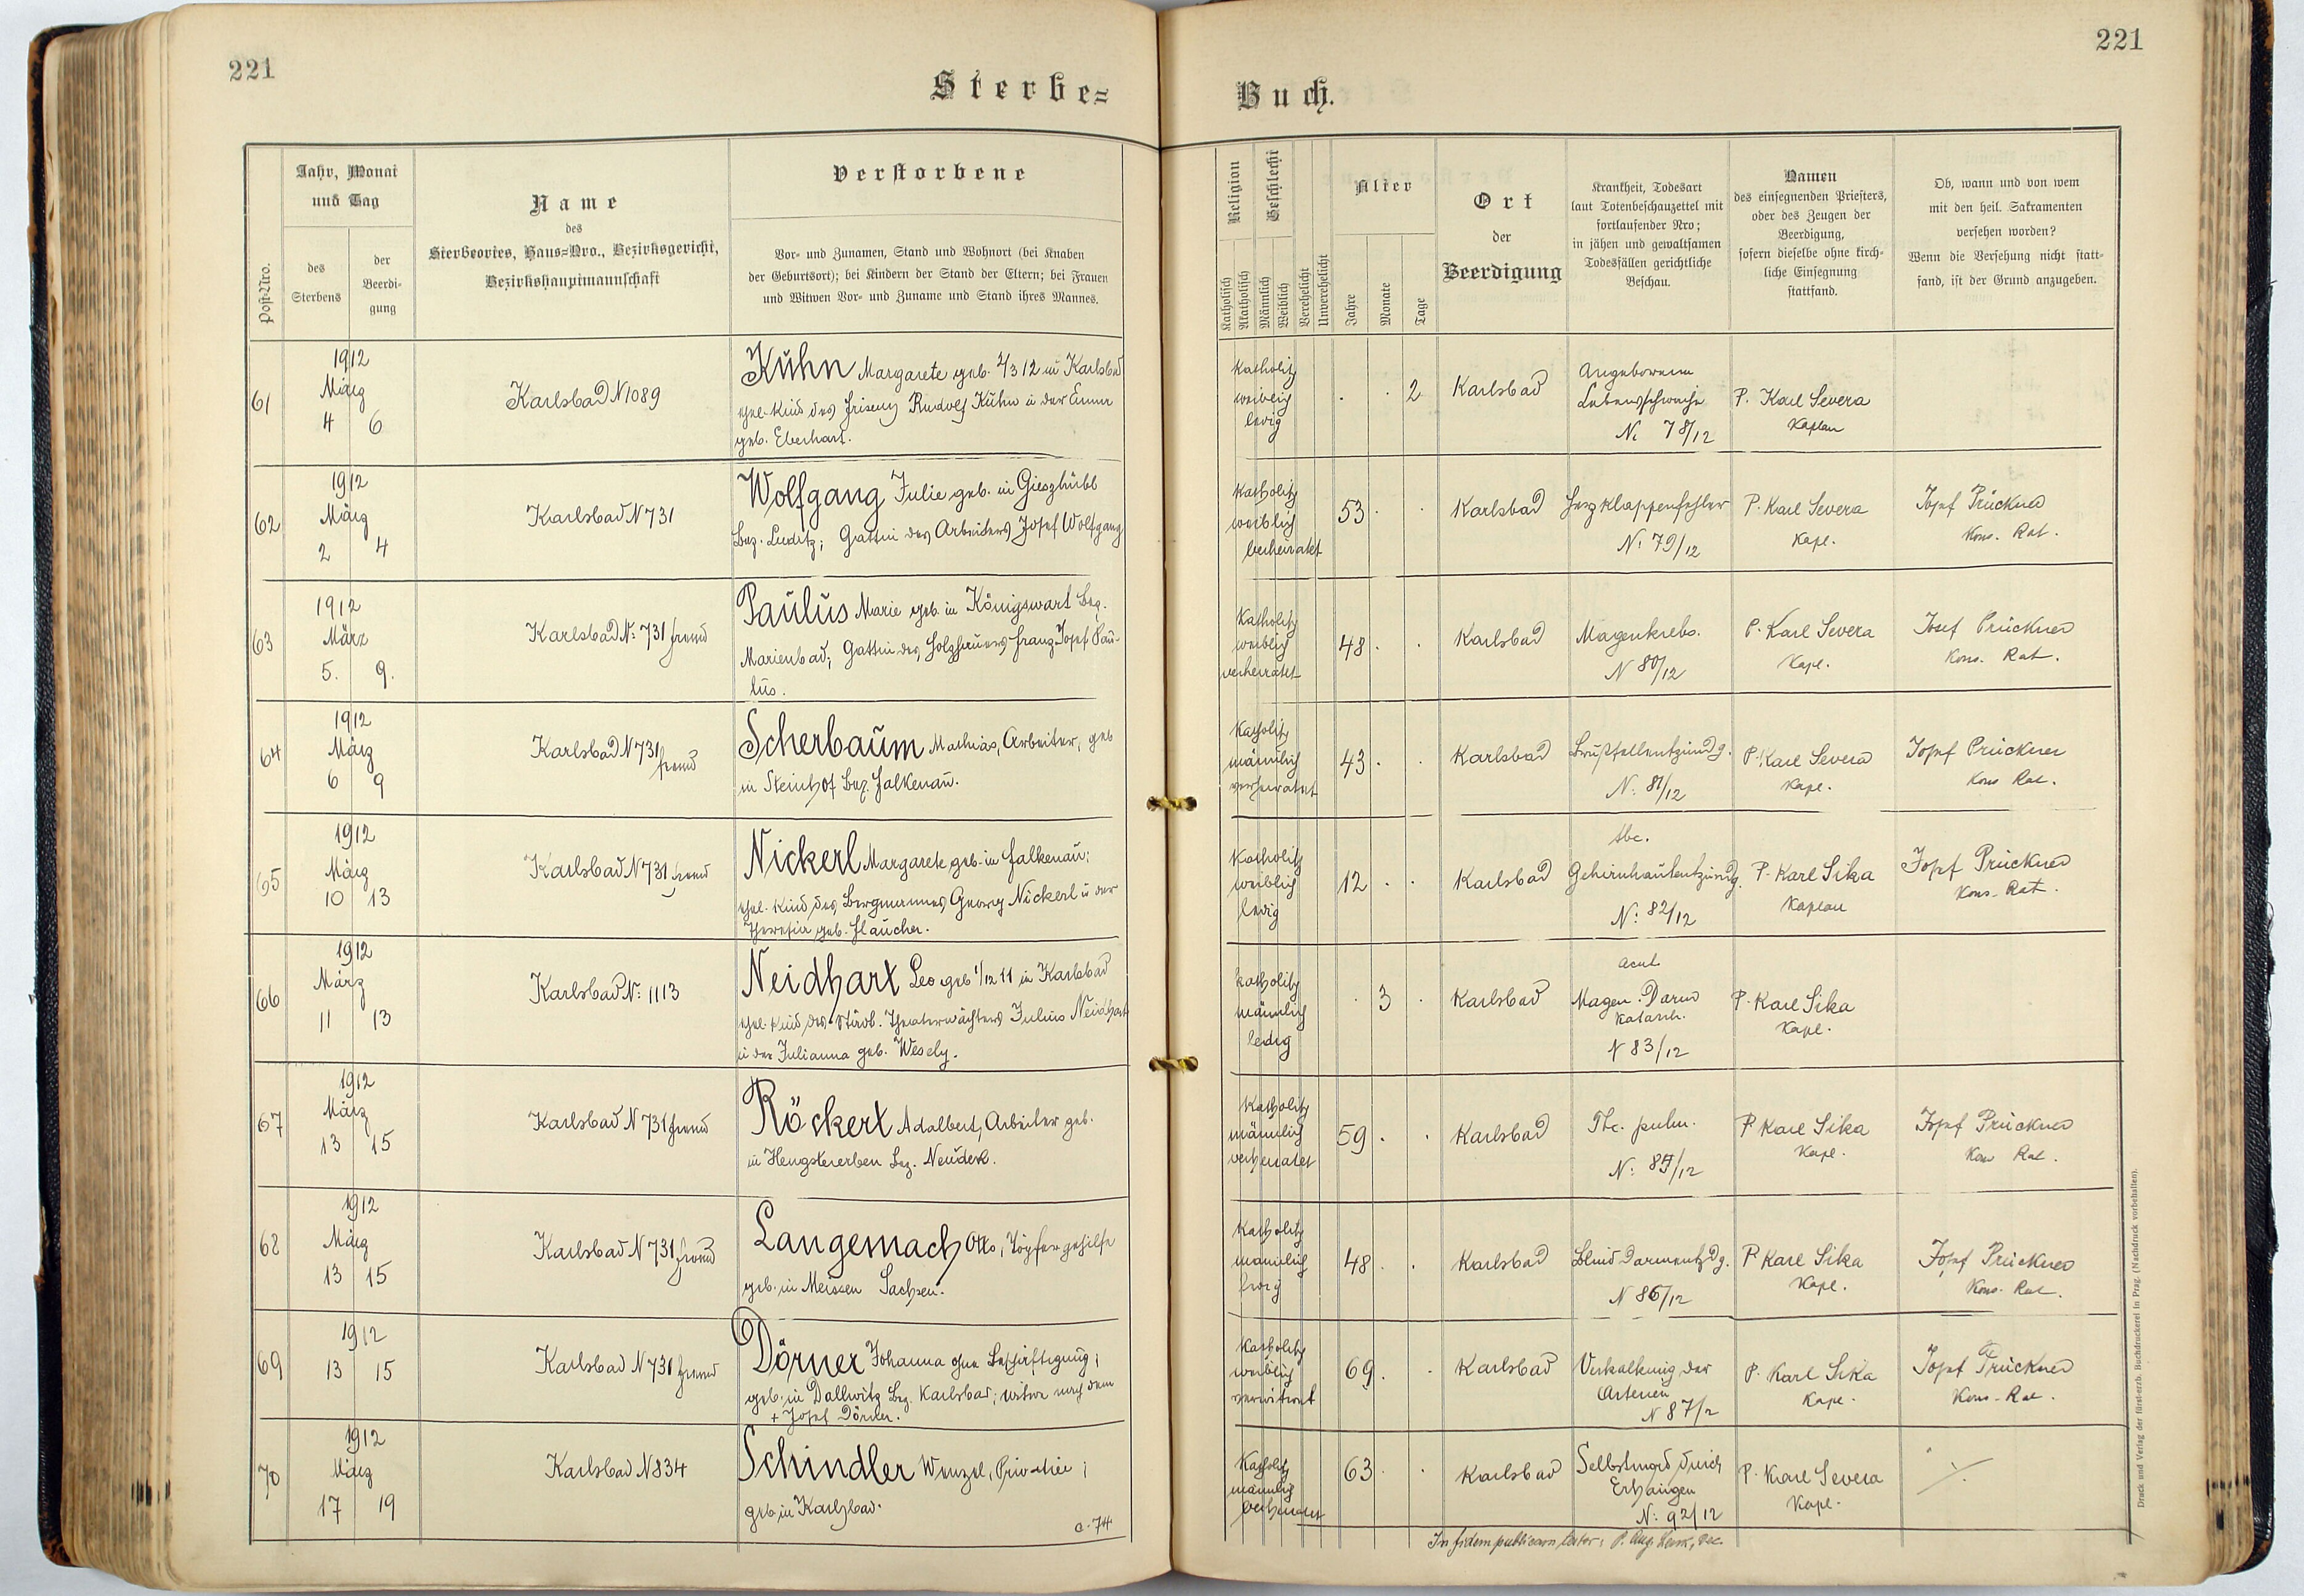 221
221
Sterbe=
Buch.
Post-Nro.
Jahr, Monat
und Tag
des
Sterbens
der
Beerdi-
gung
Name
des
Sterbeortes, Haus=Nro., Bezirksgericht,
Bezirkshauptmannschaft
Verstorbene
Vor- und Zunamen, Stand und Wohnort (bei Knaben
der Geburtsort); bei Kindern der Stand der Eltern; bei Frauen
und Witwen Vor- und Zuname und Stand ihres Mannes.
Religion
Geschlecht
Katholisch
Akatholisch
Männlich
Weiblich
Verehelicht
Unverehelicht
Alter
Jahre
Monate
Tage
Ort
der
Beerdigung
Krankheit, Todesart
laut Totenbeschauzettel mit
fortlaufender Nro;
in jähen und gewaltsamen
Todesfällen gerichtliche
Beschau.
Namen
des einsegnenden Priesters,
oder des Zeugen der
Beerdigung,
sofern dieselbe ohne kirch-
liche Einsegnung
stattfand.
Ob, wann und von wem
mit den heil. Sakramenten
versehen worden?
Wenn die Versehung nicht statt-
fand, ist der Grund anzugeben.
61
1912
März
4 6
Karlsbad N 1089
Kühn Margarete geb. 2/3 12 in Karlsbad
ehel. Kind des Friseurs Rudolf Kühn u der Emma
geb. Eberhart.
katholisch
weiblich
ledig
2
Karlsbad
Angeborene
Lebensschwäche
N: 78/12
P. Karl Severa
Kaplan
62
1912
März
2 4
Karlsbad N 731
Wolfgang Julie geb. in Gieszhübl
Bez. Luditz; Gattin des Arbeiters Josef Wolfgang
Katholisch
weiblich
verheiratet
53
Karlsbad
Herzklappenfehler
N: 79/12
P. Karl Severa
Kapl.
Josef Prückner
Kons. Rat.
63
1912
März
5. 9.
Karlsbad N: 731 fremd
Paulus Marie geb. in Königswart Bez.
Marienbad; Gattin des Holzhauers Franz Josef Pau-
lus.
Katholisch
weiblich
verheiratet
48
Karlsbad
Magenkrebs.
N 80/12
P. Karl Severa
Kapl.
Josef Prückner
Kons. Rat.
64
1912
März
6 9
Karlsbad N 731 fremd
Scherbaum Mathias, Arbeiter, geb
in Steinhof Bez. Falkenau.
Katholisch
männlich
verheiratet
43
Karlsbad
Brustfellentzündg.
N: 81/12
P. Karl Severa
Kapl.
Josef Prückner
Kons Rat.
65
1912
März
10 13
Karlsbad N 731 fremd
Nickerl Margarete geb. in Falkenau;
ehel. Kind des Bergmannes Georg Nickerl u der
Theresia geb. Flaucher.
Katholisch
weiblich
ledig
12
Karlsbad
tbc.
Gehirnhautentzündg.
N: 82/12
P. Karl Sika
Kaplan
Josef Prückner
Kons. Rat.
66
1912
März
11 13
Karlsbad N: 1113
Neidhart Leo geb 1/12 11 in Karlsbad
ehel. Kind des Theaterwächters Julius Neidhart
u der Julianna geb. Wesely.
katholisch
männlich
ledig
3
Karlsbad
acut.
Magen-Darm
katarrh.
N 83/12
P. Karl Sika
Kapl.
67
1912
März
13 15
Karlsbad N 731 fremd
Röckert Adalbert, Arbeiter geb.
in Hengstererben Bez. Neudek.
Katholisch
männlich
verheiratet
59
Karlsbad
Tbc. pulm.
P Karl Sika
Kapl.
Josef Prückner
Kons Rat.
68
1912
März
13 15
Karlsbad N 731 fremd
Langemach Otto, Töpfergehilfe
geb. in Meissen Sachsen.
Katholisch
männlich
ledig
48
Karlsbad
N 86/12
P Karl Sika
Kapl.
Josef Prückner
Kons. Rat.
69
1912
13 15
Karlsbad N 731 fremd
Dörner Johanna ohne Beschäftigung;
geb. in Dallwitz Bez. Karlsbad; Witwe nach dem
+ Josef Dörner.
Katholisch
weiblich
verwitwet
69
Karlsbad
Verkalkung der
Arterien
N 87/12
P. Karl Sika
Kapl.
Josef Prückner
Kons. Rat.
70
1912
März
17 19
Karlsbad N 834
Schindler Wenzel, Privatier;
geb in Karlsbad.
a. 74
Katholisch
männlich
verheiratet
63
Karlsbad
Selbstmord durch
Erhängen
N: 92/12
P. Karl Severa
Kapl.
In fidem publicam testor: P. Aug.
Druck und Verlag der fürst-erzb. Buchdruckerei in Prag. (Nachdruck vorbehalten).